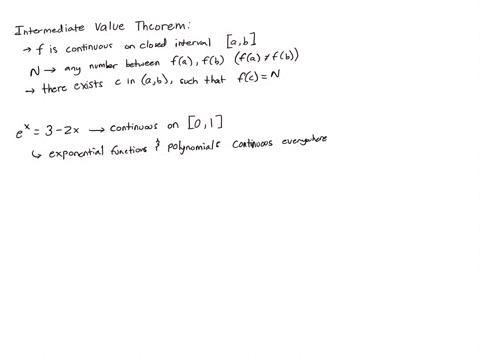 Intermediate Value Theorem:
→ f is continuous on closed interval [a,b]
N → any number between f(a), f(b) (f(a) ≠ f(b))
→ there exists c in (a,b), such that f(c) = N
e^x = 3 - 2x → continuous on [0,1]
↳ exponential functions & polynomials continuous everywhere